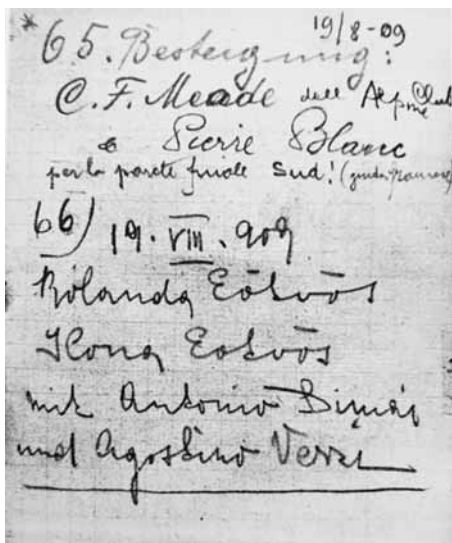 * 19/8-09
65. Besteigung:
C. F. Meade dell Alpine Club
e Pierre Blanc
per la parete finale Sud! (guida francese)
66) 19. VIII. 909
Rolanda Eötvös
Ilona Eotvös
mit Antonio Dimai
und Agostino Verzi